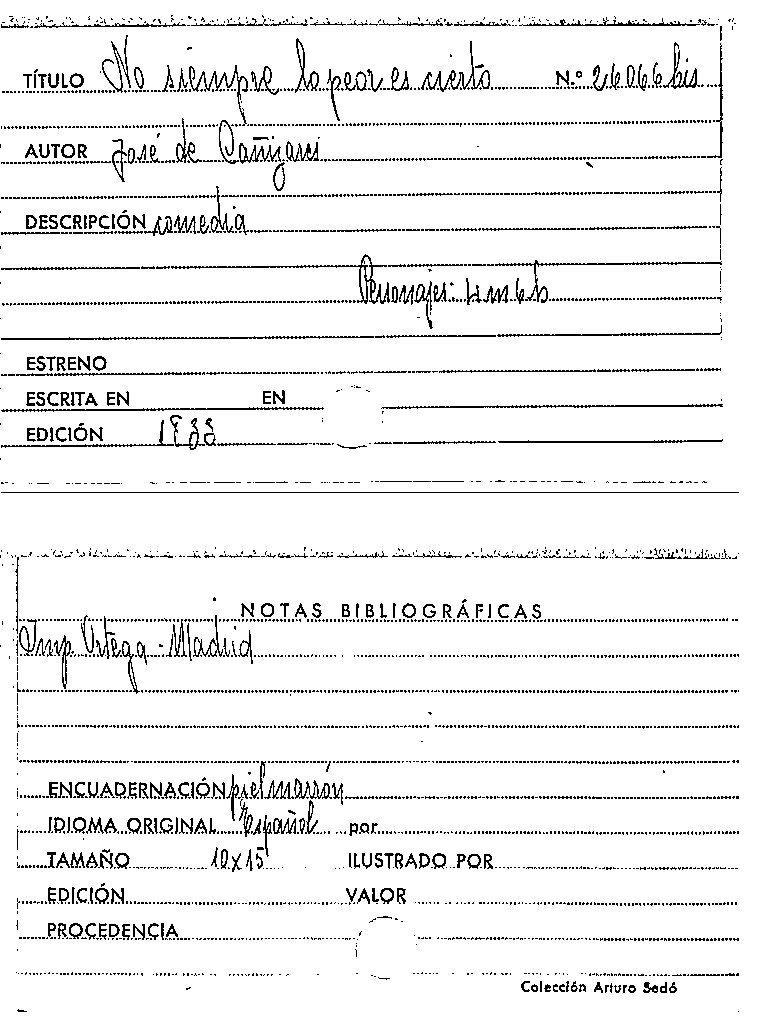 TÍTULO No siempre lo peor es cierto N.º 26066 bis
AUTOR José de Cañizares
DESCRIPCIÓN comedia
Personajes: 4 m 6 h
ESTRENO
ESCRITA EN EN
EDICIÓN 1833
NOTAS BIBLIOGRÁFICAS
Imp. Ortega - Madrid
ENCUADERNACIÓN piel marrón
IDIOMA ORIGINAL Español por
TAMAÑO 10x15 ILUSTRADO POR
EDICIÓN VALOR
PROCEDENCIA
Colección Arturo Sedó